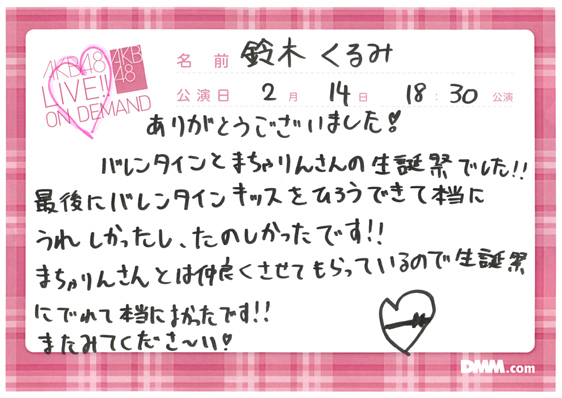 AKB48
LIVE!!
ON DEMAND
AKB
48
名前 鈴木くるみ
公演日 2月 14日 18:30 公演
ありがとうございました!
バレンタインとまちゃりんさんの生誕祭でした!!
最後にバレンタインキッスをひろうできて本当に
うれしかったし、たのしかったです!!
まちゃりんさんとは仲良くさせてもらっているので生誕祭
にでれて本当によかったです!!
またみてくださ〜い!
DMM.com